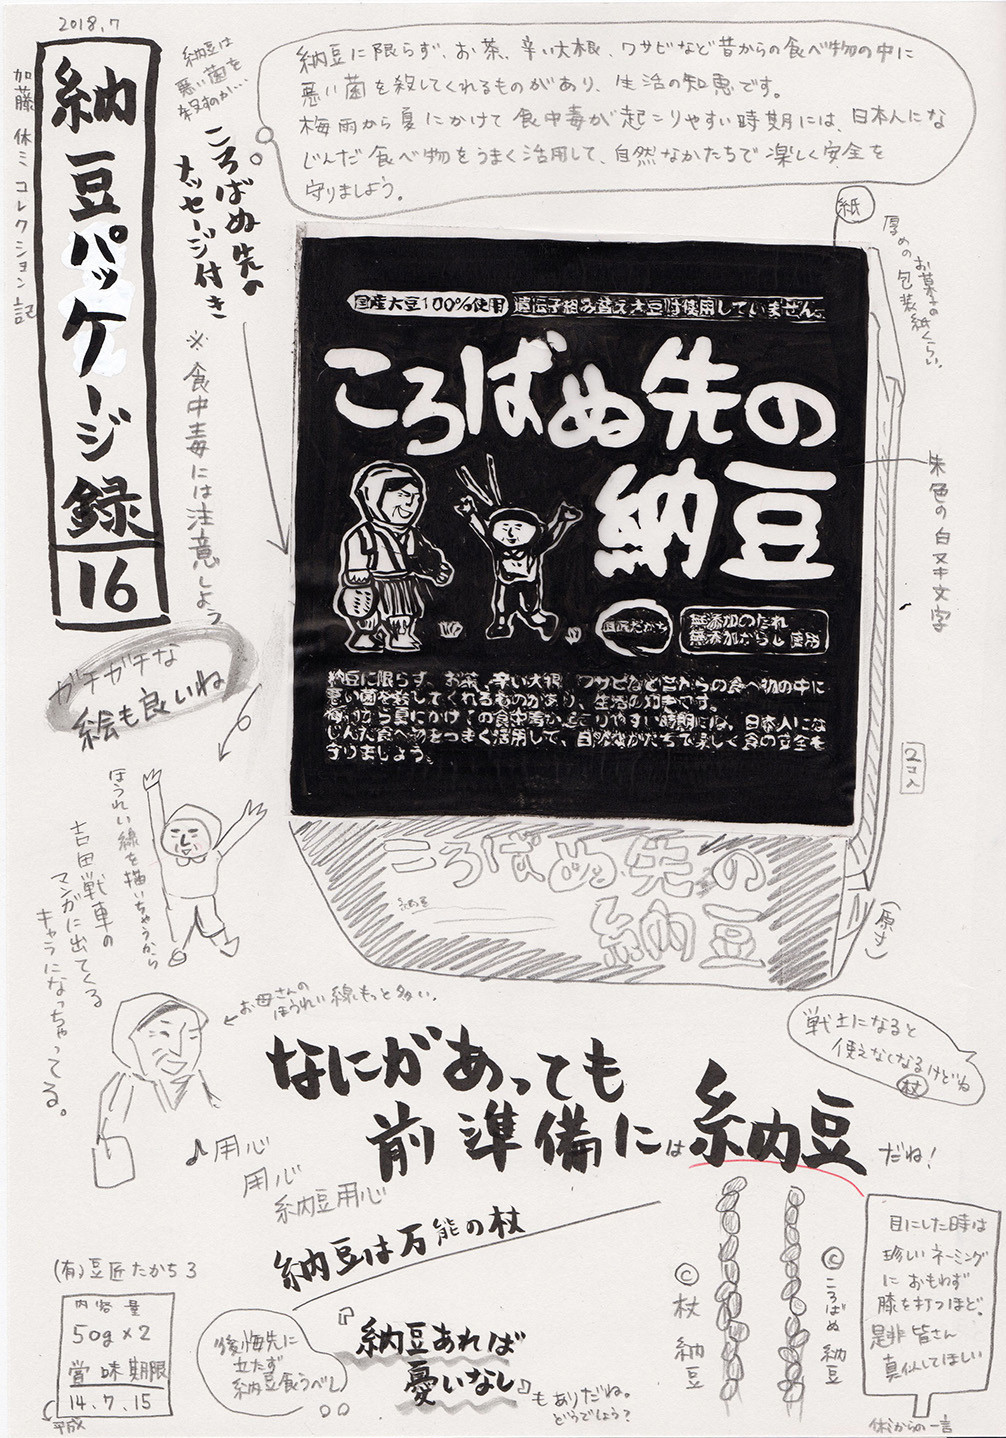 2018.7
加藤休ミコレクション記
納豆パッケージ録
16
納豆は
悪い菌を
殺すのか…
ころばぬ先♪
メッセージ付き
※食中毒には注意しよう
納豆に限らず、お茶、辛い大根、ワサビなど昔からの食べ物の中に
悪い菌を殺してくれるものがあり、生活の知恵です。
梅雨から夏にかけて食中毒が起こりやすい時期には、日本人にな
じんだ食べ物をうまく活用して、自然なかたちで楽しく安全を
守りましょう。
紙
厚めの
お菓子の
包装紙くらい。
国産大豆100%使用
遺伝子組み替え大豆は使用していません。
ころばぬ先の
納豆
豆匠たかち
無添加のたれ
無添加からし 使用
納豆に限らず、お茶、辛い大根、ワサビなど昔からの食べ物の中に
悪い菌を殺してくれるものがあり、生活の知恵です。
じんだ食べ物をうまく活用して、自然なかたちで楽しく食の安全を
守りましょう。
朱色の白ヌキ文字
2コ入
(原寸)
ころばぬ先の
納豆
ガチガチな
絵も良いね
ほうれい線を描いちゃうから
吉田戦車の
マンガに出てくる
キャラになっちゃってる。
←お母さんの
ほうれい線もっと多い。
なにがあっても
前準備には納豆だね!
戦士になると
使えなくなるけどね
杖
♪用心
用心
納豆用心
納豆は万能の杖
(有)豆匠たかち3
内容量
50g×2
賞味期限
14.7.15
平成
後悔先に
立たず
納豆食うべし
『納豆あれば
憂いなし』
もありだね。
どうでしょう?
©杖納豆
©ころばぬ納豆
目にした時は
珍しいネーミング
におもわず
膝を打つほど。
是非皆さん
真似してほしい
休ミからの一言